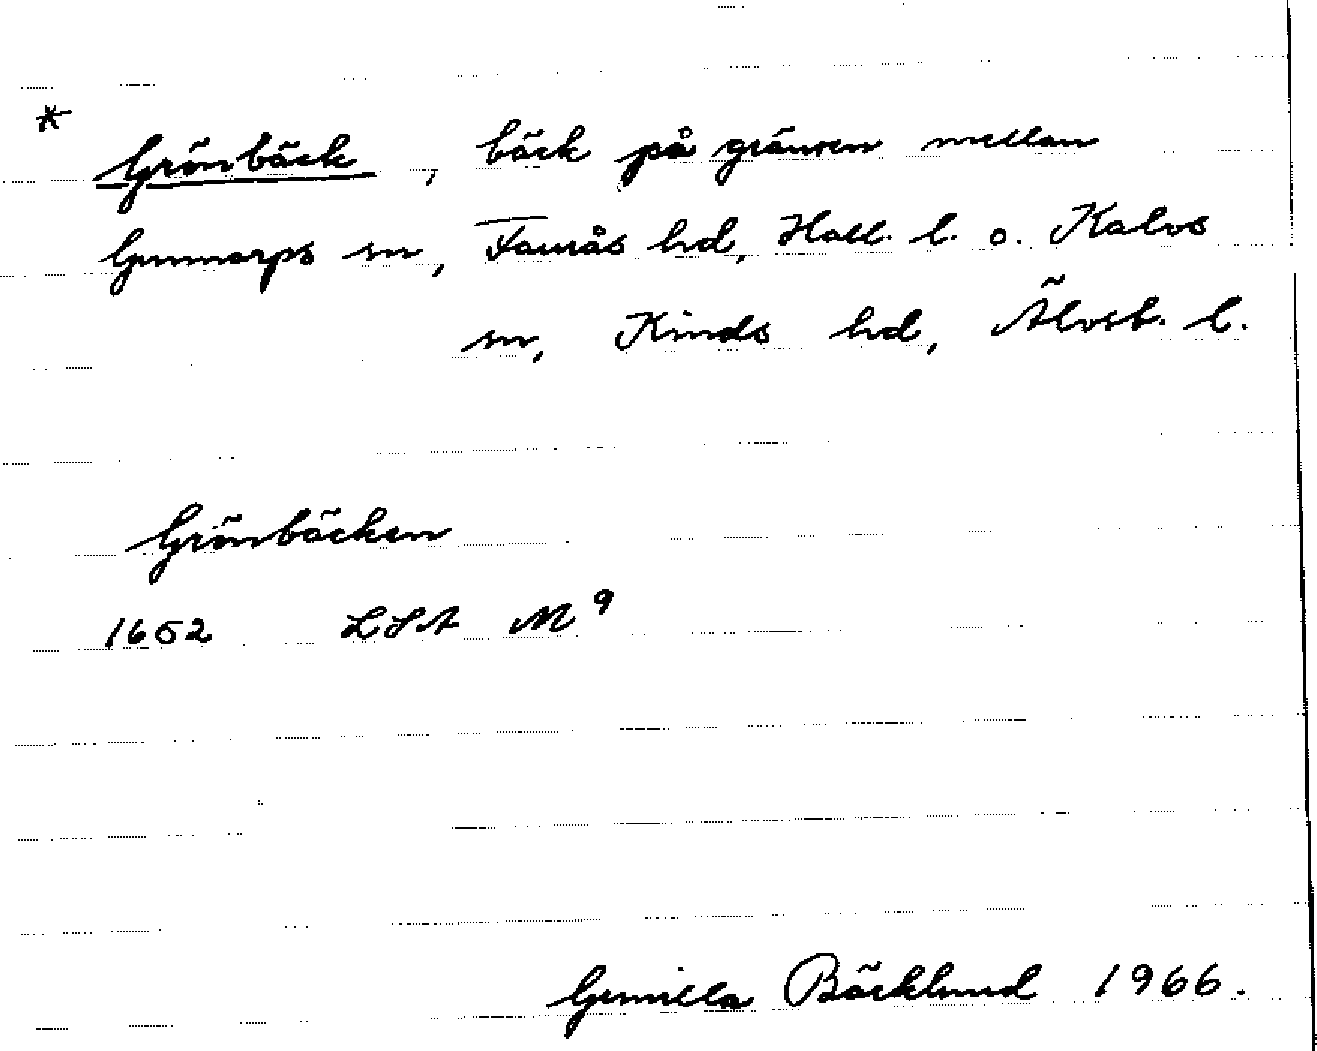 * Grönbäck, bäck på gränsen mellan
Gunnarps sn, Faurås hd, Hall. l. o. Kalvs
sn, Kinds hd, Älvsb. l.
Grönbäcken
1652 LSA M 9
Gunilla Bäcklund 1966.